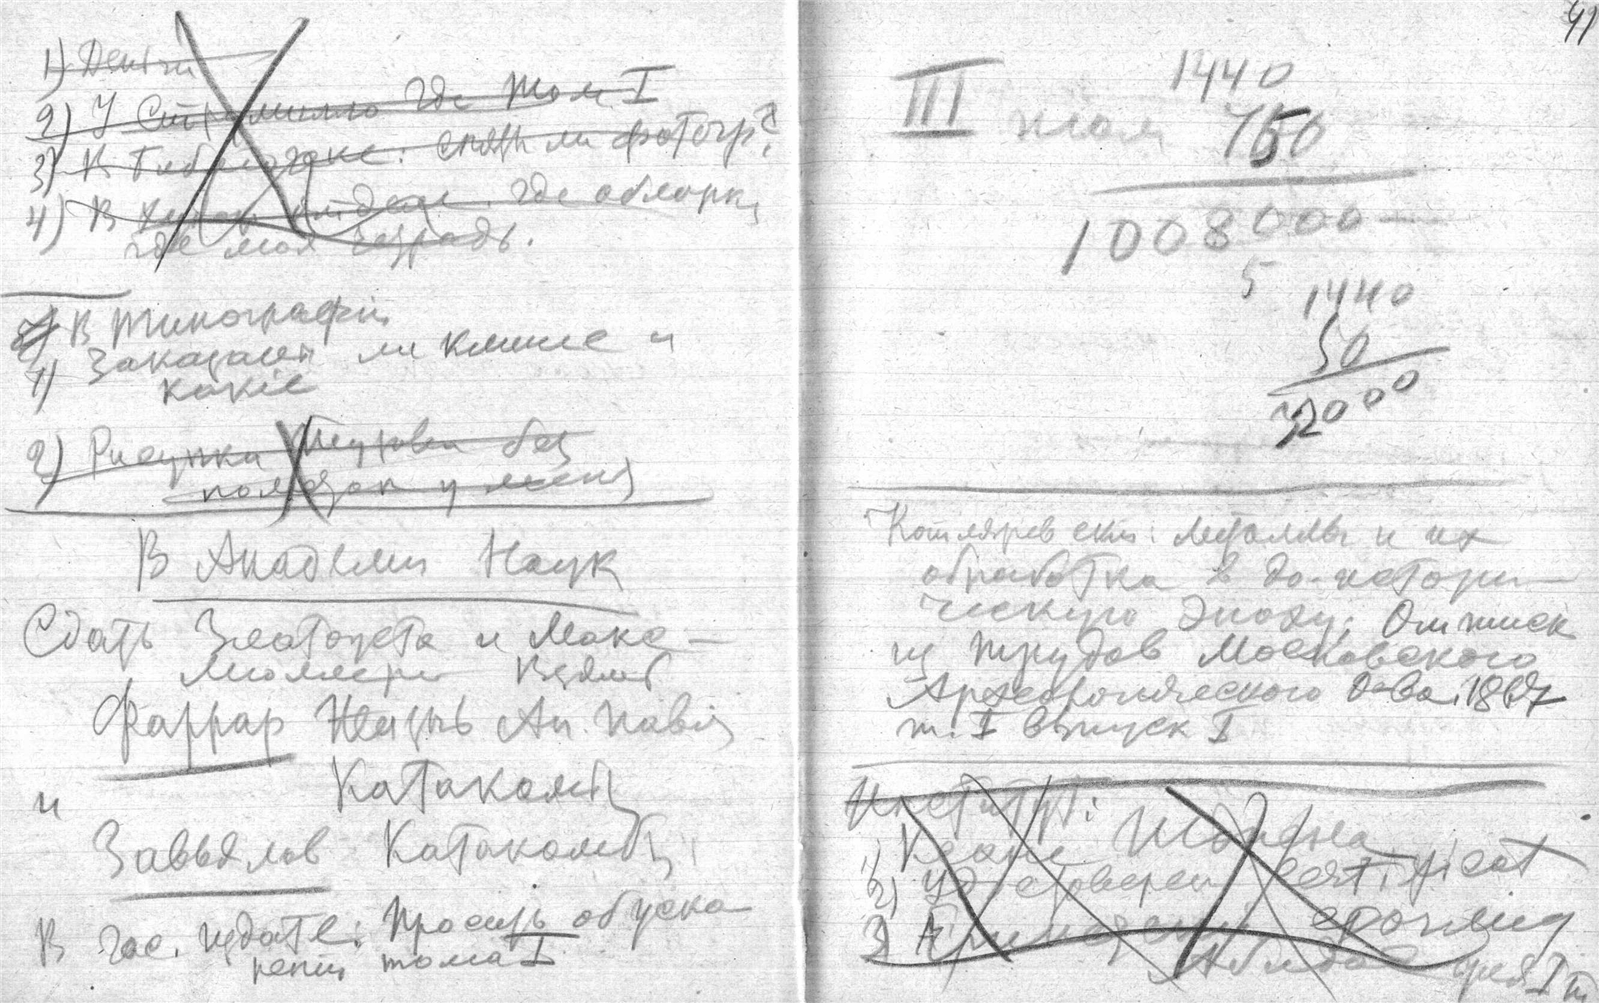 1) Деньги
2) У Струмилло где том I
3) К Библиотеке: сняты ли фотогр?
4) В где обложки
где моя тетрадь.
В типографии
1) Заказаны ли клише и
какие
2) Рисунки без
показан у меня
В Академии Наук
Сдать Златоуста и Макс-
Мюллера Взять
Фаррар Жизнь Ап. Павла
и Катакомбы
Завьялов Катакомбы
В гос. издате: Просить об уско
рении тома I
41
III том
1440
750
1008000
5
1440
50
72000
Котляревский: Металлы и их
обработка в до-истори-
ческую эпоху. Оттиск
из трудов Московского
Археологического О-ва. 1867
т. I выпуск I
Институт:
1)
2) Удостоверен certificat
3)